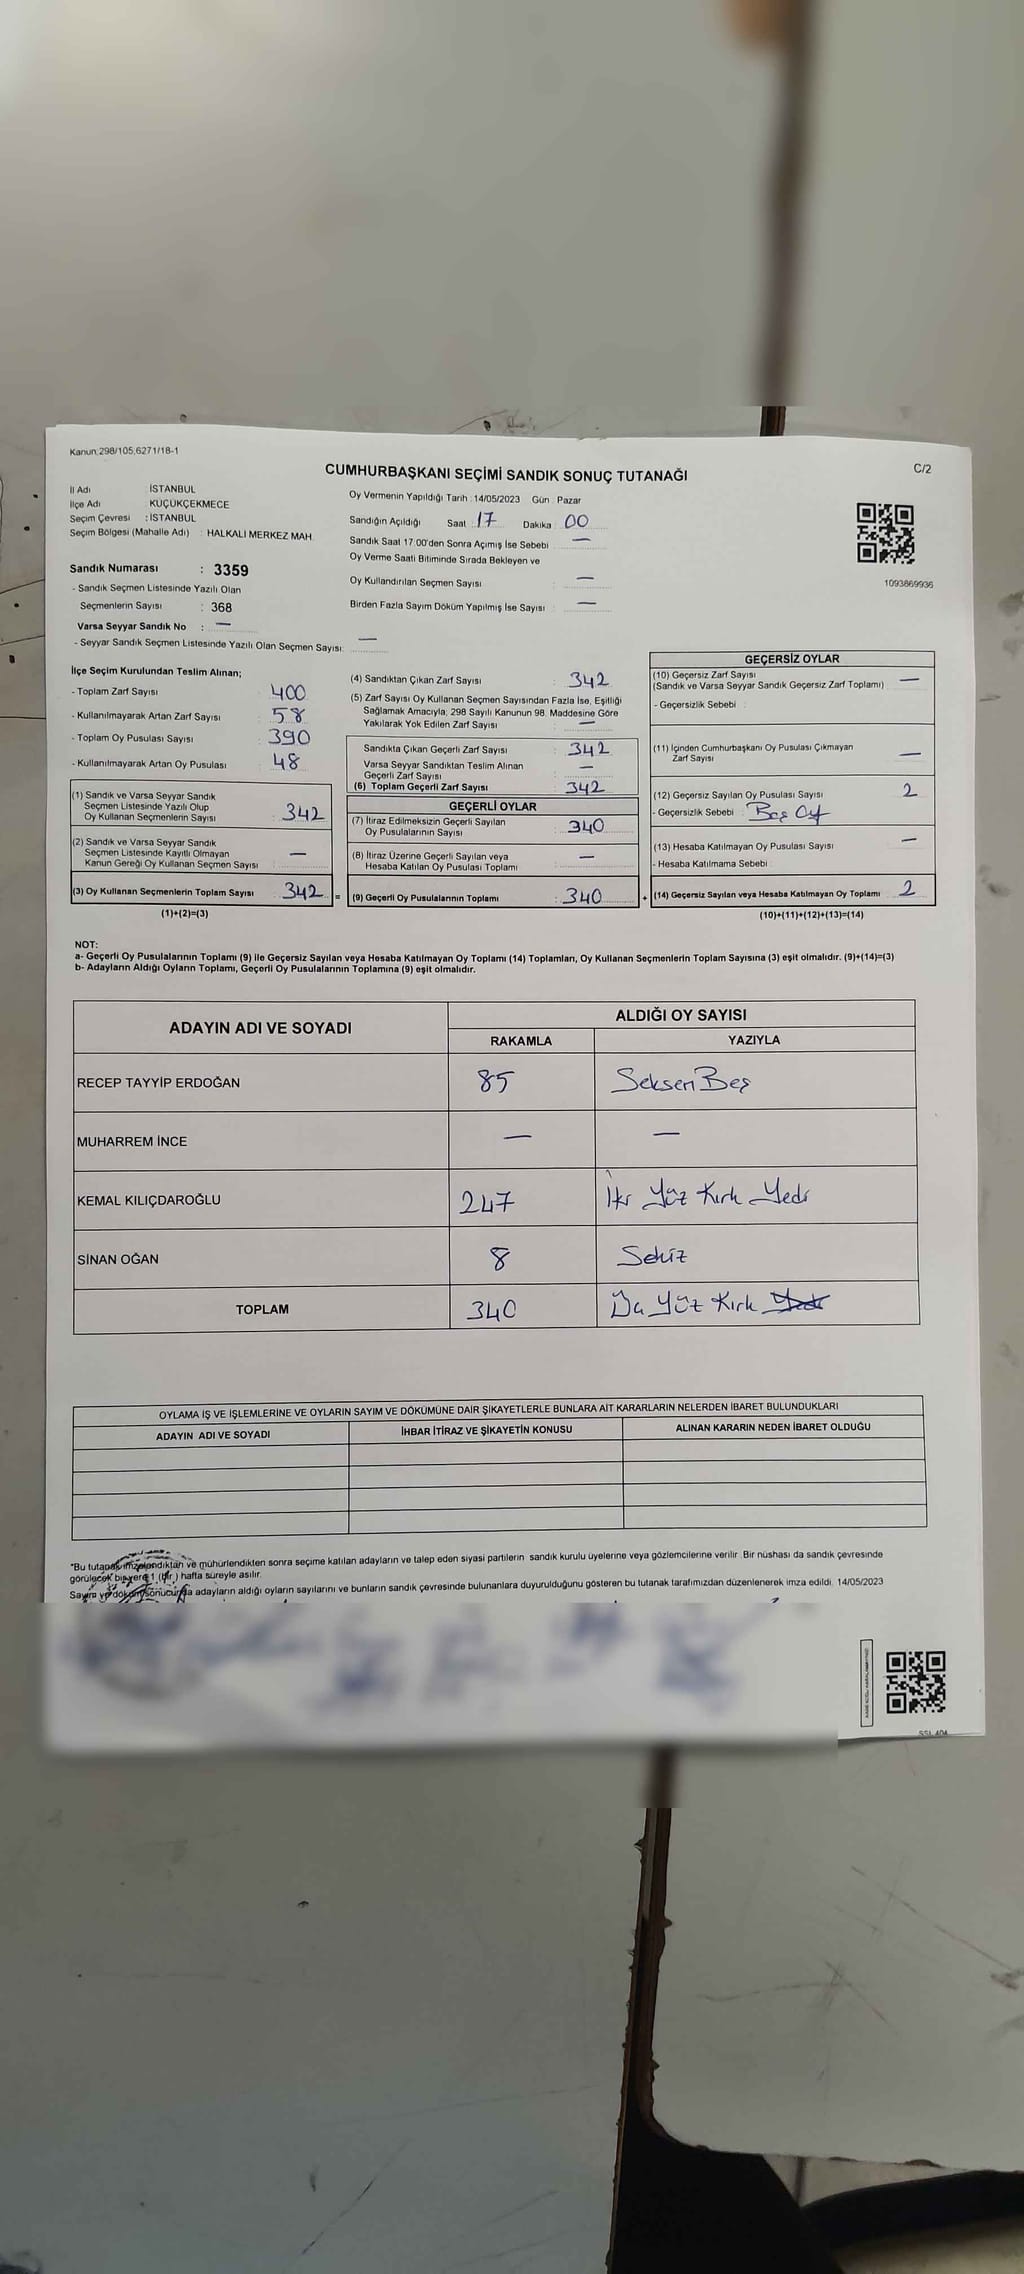 Kanun:298/105,6271/18-1
C/2
CUMHURBAŞKANI SEÇİMİ SANDIK SONUÇ TUTANAĞI
İl Adı İSTANBUL
İlçe Adı KÜÇÜKÇEKMECE
Seçim Çevresi : İSTANBUL
Seçim Bölgesi (Mahalle Adı) : HALKALI MERKEZ MAH.
Sandık Numarası : 3359
- Sandık Seçmen Listesinde Yazılı Olan
Seçmenlerin Sayısı : 368
Varsa Seyyar Sandık No : —
- Seyyar Sandık Seçmen Listesinde Yazılı Olan Seçmen Sayısı: —
Oy Vermenin Yapıldığı Tarih : 14/05/2023 Gün : Pazar
Sandığın Açıldığı Saat : 17 Dakika : 00
Sandık Saat 17:00'den Sonra Açımış İse Sebebi : —
Oy Verme Saati Bitiminde Sırada Bekleyen ve
Oy Kullandırılan Seçmen Sayısı : —
Birden Fazla Sayım Döküm Yapılmış İse Sayısı : —
1093869936
İlçe Seçim Kurulundan Teslim Alınan;
- Toplam Zarf Sayısı : 400
- Kullanılmayarak Artan Zarf Sayısı : 58
- Toplam Oy Pusulası Sayısı : 390
- Kullanılmayarak Artan Oy Pusulası : 48
(1) Sandık ve Varsa Seyyar Sandık
Seçmen Listesinde Yazılı Olup
Oy Kullanan Seçmenlerin Sayısı : 342
(2) Sandık ve Varsa Seyyar Sandık
Seçmen Listesinde Kayıtlı Olmayan
Kanun Gereği Oy Kullanan Seçmen Sayısı : —
(3) Oy Kullanan Seçmenlerin Toplam Sayısı : 342 =
(1)+(2)=(3)
(4) Sandıktan Çıkan Zarf Sayısı : 342
(5) Zarf Sayısı Oy Kullanan Seçmen Sayısından Fazla İse, Eşitliği
Sağlamak Amacıyla, 298 Sayılı Kanunun 98. Maddesine Göre
Yakılarak Yok Edilen Zarf Sayısı : —
Sandıkta Çıkan Geçerli Zarf Sayısı : 342
Varsa Seyyar Sandıktan Teslim Alınan
Geçerli Zarf Sayısı : —
(6) Toplam Geçerli Zarf Sayısı : 342
GEÇERLİ OYLAR
(7) İtiraz Edilmeksizin Geçerli Sayılan
Oy Pusulalarının Sayısı : 340
(8) İtiraz Üzerine Geçerli Sayılan veya
Hesaba Katılan Oy Pusulası Toplamı : —
(9) Geçerli Oy Pusulalarının Toplamı : 340 +
GEÇERSİZ OYLAR
(10) Geçersiz Zarf Sayısı
(Sandık ve Varsa Seyyar Sandık Geçersiz Zarf Toplamı) : —
- Geçersizlik Sebebi :
(11) İçinden Cumhurbaşkanı Oy Pusulası Çıkmayan
Zarf Sayısı : —
(12) Geçersiz Sayılan Oy Pusulası Sayısı : 2
- Geçersizlik Sebebi : Boş Oy
(13) Hesaba Katılmayan Oy Pusulası Sayısı : —
- Hesaba Katılmama Sebebi :
(14) Geçersiz Sayılan veya Hesaba Katılmayan Oy Toplamı : 2
(10)+(11)+(12)+(13)=(14)
NOT:
a- Geçerli Oy Pusulalarının Toplamı (9) ile Geçersiz Sayılan veya Hesaba Katılmayan Oy Toplamı (14) Toplamları, Oy Kullanan Seçmenlerin Toplam Sayısına (3) eşit olmalıdır. (9)+(14)=(3)
b- Adayların Aldığı Oyların Toplamı, Geçerli Oy Pusulalarının Toplamına (9) eşit olmalıdır.
ADAYIN ADI VE SOYADI ALDIĞI OY SAYISI
RAKAMLA YAZIYLA
RECEP TAYYİP ERDOĞAN 85 Seksen Beş
MUHARREM İNCE — —
KEMAL KILIÇDAROĞLU 247 İki Yüz Kırk Yedi
SİNAN OĞAN 8 Sekiz
TOPLAM 340 Üç Yüz Kırk
OYLAMA İŞ VE İŞLEMLERİNE VE OYLARIN SAYIM VE DÖKÜMÜNE DAİR ŞİKAYETLERLE BUNLARA AİT KARARLARIN NELERDEN İBARET BULUNDUKLARI
ADAYIN ADI VE SOYADI İHBAR İTİRAZ VE ŞİKAYETİN KONUSU ALINAN KARARIN NEDEN İBARET OLDUĞU
*Bu tutanak imzalandıktan ve mühürlendikten sonra seçime katılan adayların ve talep eden siyasi partilerin sandık kurulu üyelerine veya gözlemcilerine verilir. Bir nüshası da sandık çevresinde
görülecek bir yere 1 (bir) hafta süreyle asılır.
Sayım ve döküm sonucunda adayların aldığı oyların sayılarını ve bunların sandık çevresinde bulunanlara duyurulduğunu gösteren bu tutanak tarafımızdan düzenlenerek imza edildi. 14/05/2023